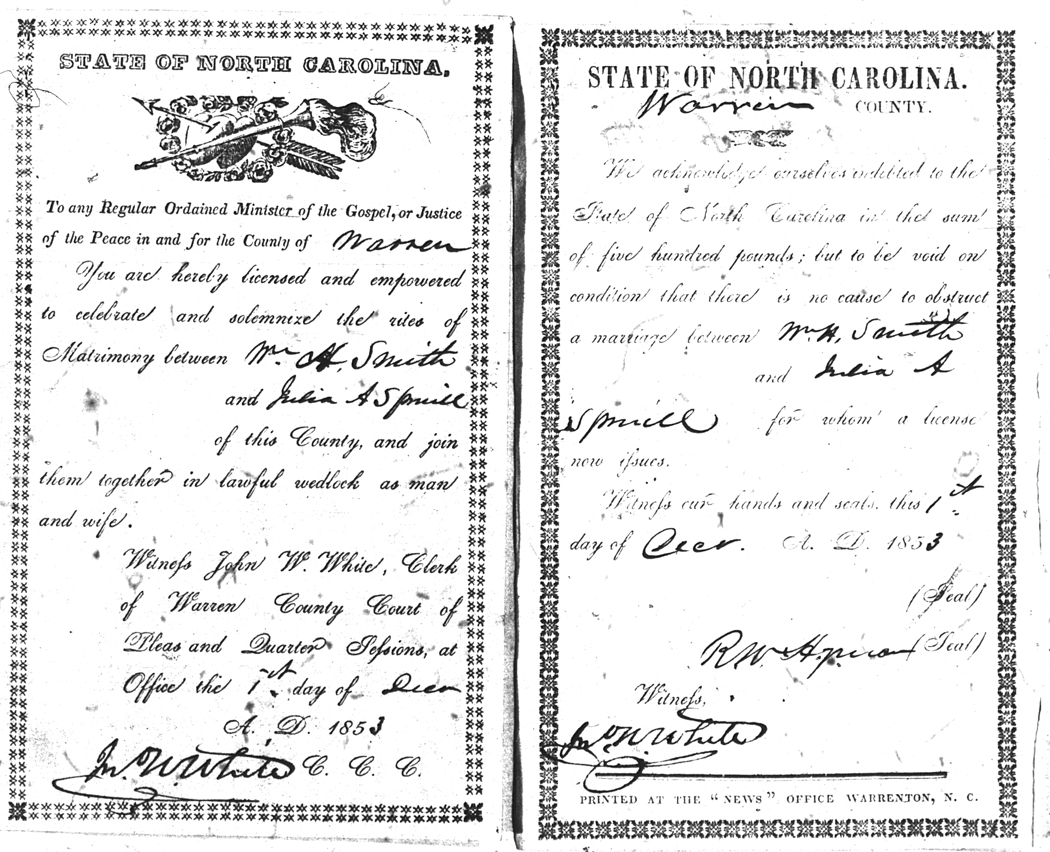 STATE OF NORTH CAROLINA.
To any Regular Ordained Minister of the Gospel, or Justice
of the Peace in and for the County of Warren
You are hereby licensed and empowered
to celebrate and solemnize the rites of
Matrimony between Wm. H. Smith
and Julia A Spruill
of this County, and join
them together in lawful wedlock as man
and wife.
Witness John W. White, Clerk
of Warren County Court of
Pleas and Quarter Sessions, at
Office the 1st day of Decr
A. D. 1853
Jn. W White C. C. C.
STATE OF NORTH CAROLINA.
Warren COUNTY.
We acknowledge ourselves indebted to the
State of North Carolina in the sum
of five hundred pounds; but to be void on
condition that there is no cause to obstruct
a marriage between Wm. H. Smith
and Julia A
Spruill for whom a license
now issues.
Witness our hands and seals, this 1st
day of Decr. A. D. 1853
(Seal)
R W (Seal)
Witness,
Jn. W. White
PRINTED AT THE "NEWS" OFFICE WARRENTON, N. C.